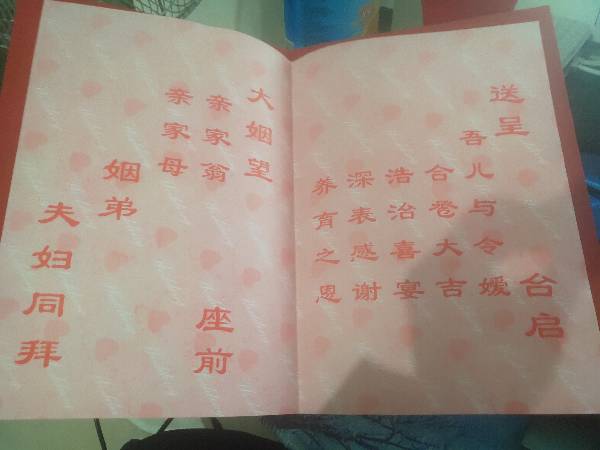 送呈
台启
吾儿与令嫒
合卺大吉
浩治喜宴
深表感谢
养育之恩
大姻望
亲家翁
亲家母
座前
姻弟
夫妇同拜